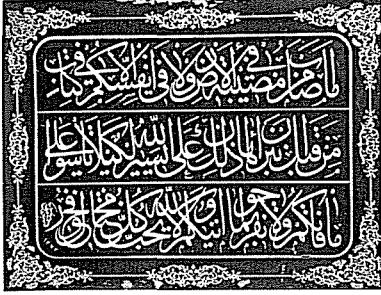 ما اصاب من مصيبة في الارض ولا في انفسكم الا في كتاب
من قبل ان نبراها ان ذلك على الله يسير لكيلا تاسوا على
ما فاتكم ولا تفرحوا بما اتيكم والله لا يحب كل مختال فخور